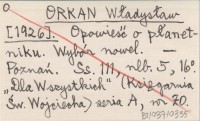 O
ORKAN Władysław
[1926]. Opowieść o płanet-
niku. Wybór nowel. —
Poznań. Ss. 111, nlb. 5, 16°.
„Dla Wszystkich" (Księgarnia
Św. Wojciecha) seria A, nr. 70.